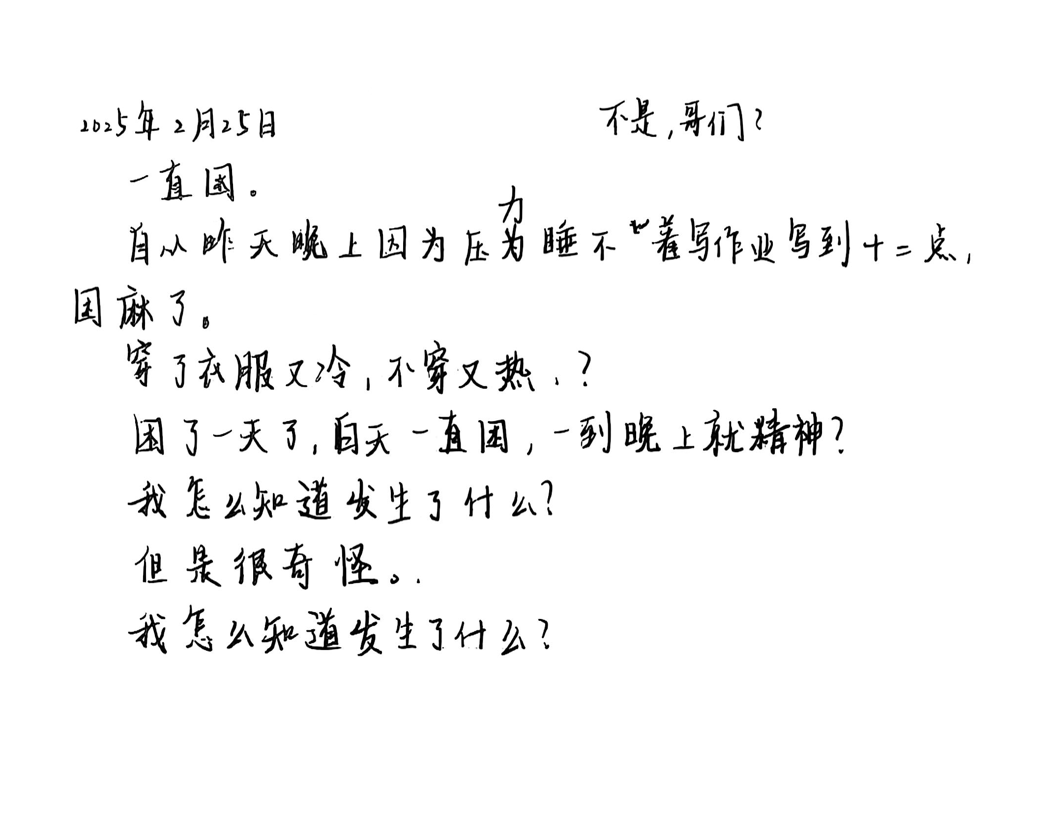 2025年2月25日 不是,哥们?
一直困。
力
自从昨天晚上因为压为睡不着写作业写到十二点,
困麻了。
穿了衣服又冷,不穿又热.?
困了一天了,白天一直困,一到晚上就精神?
我怎么知道发生了什么?
但是很奇怪。.
我怎么知道发生了什么?